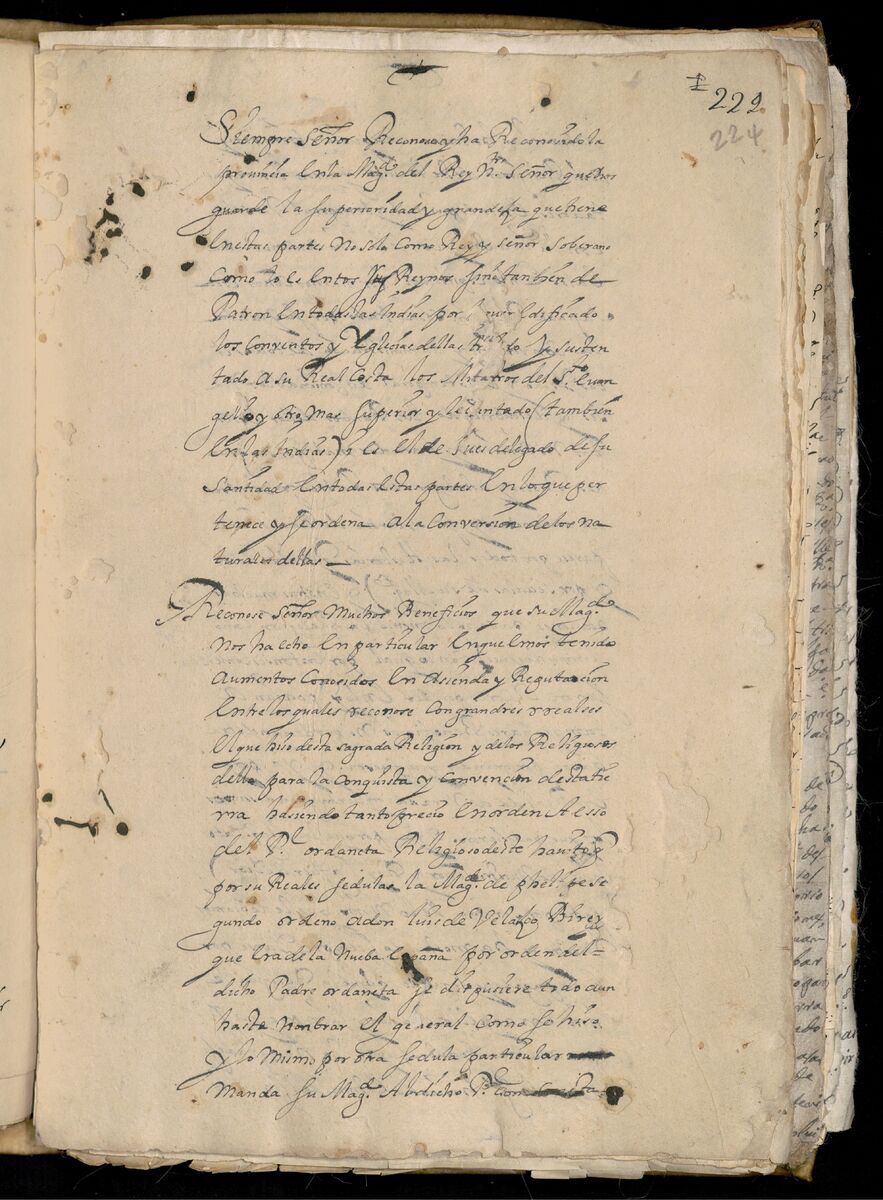 222
224
Siempre señor Reconoce y ha Reconosido la
provincia en la Mag.d del Rey Nr.o Señor que Dios
guarde la superioridad y grandesa que tiene
en estas partes No solo como Rey y señor soberano
como lo es en tos sus Reynos sino tanbien de
Patron en todas las Indias por edificado
los Conventos y Yglesias dellas y susten
tado a su Real Costa los Ministros del S.to Evan
gelio y otro mas superior y levantado (tambien
en las Indias) i es el de Jues delegado de su
santidad en todas estas partes en lo que per
tenece y se ordena a la Conversion de los na
turales dellas
Reconose señor Muchos Beneficios que su Mag.d
nos ha echo en particular en que emos tenido
aumentos conosidos en asienda y Reputasion
entre los quales reconose con grandes reales
el que hiso desta sagrada Religion y de los Religiosos
della para la conquista y convercion desta tie
rra hasiendo tanto precio en orden a esso
del P.e ordaneta Religioso deste havito q
por sus Reales sedulas la Mag.d de phelipe se
gundo ordeno a don luis de Velasco Birey
que era de la Nueba españa por orden del
dicho Padre ordaneta se dispusiese todo aun
hasta nonbrar el general como se hiso
y lo mismo por otra sedula particular
manda su Mag.d al dicho P.e